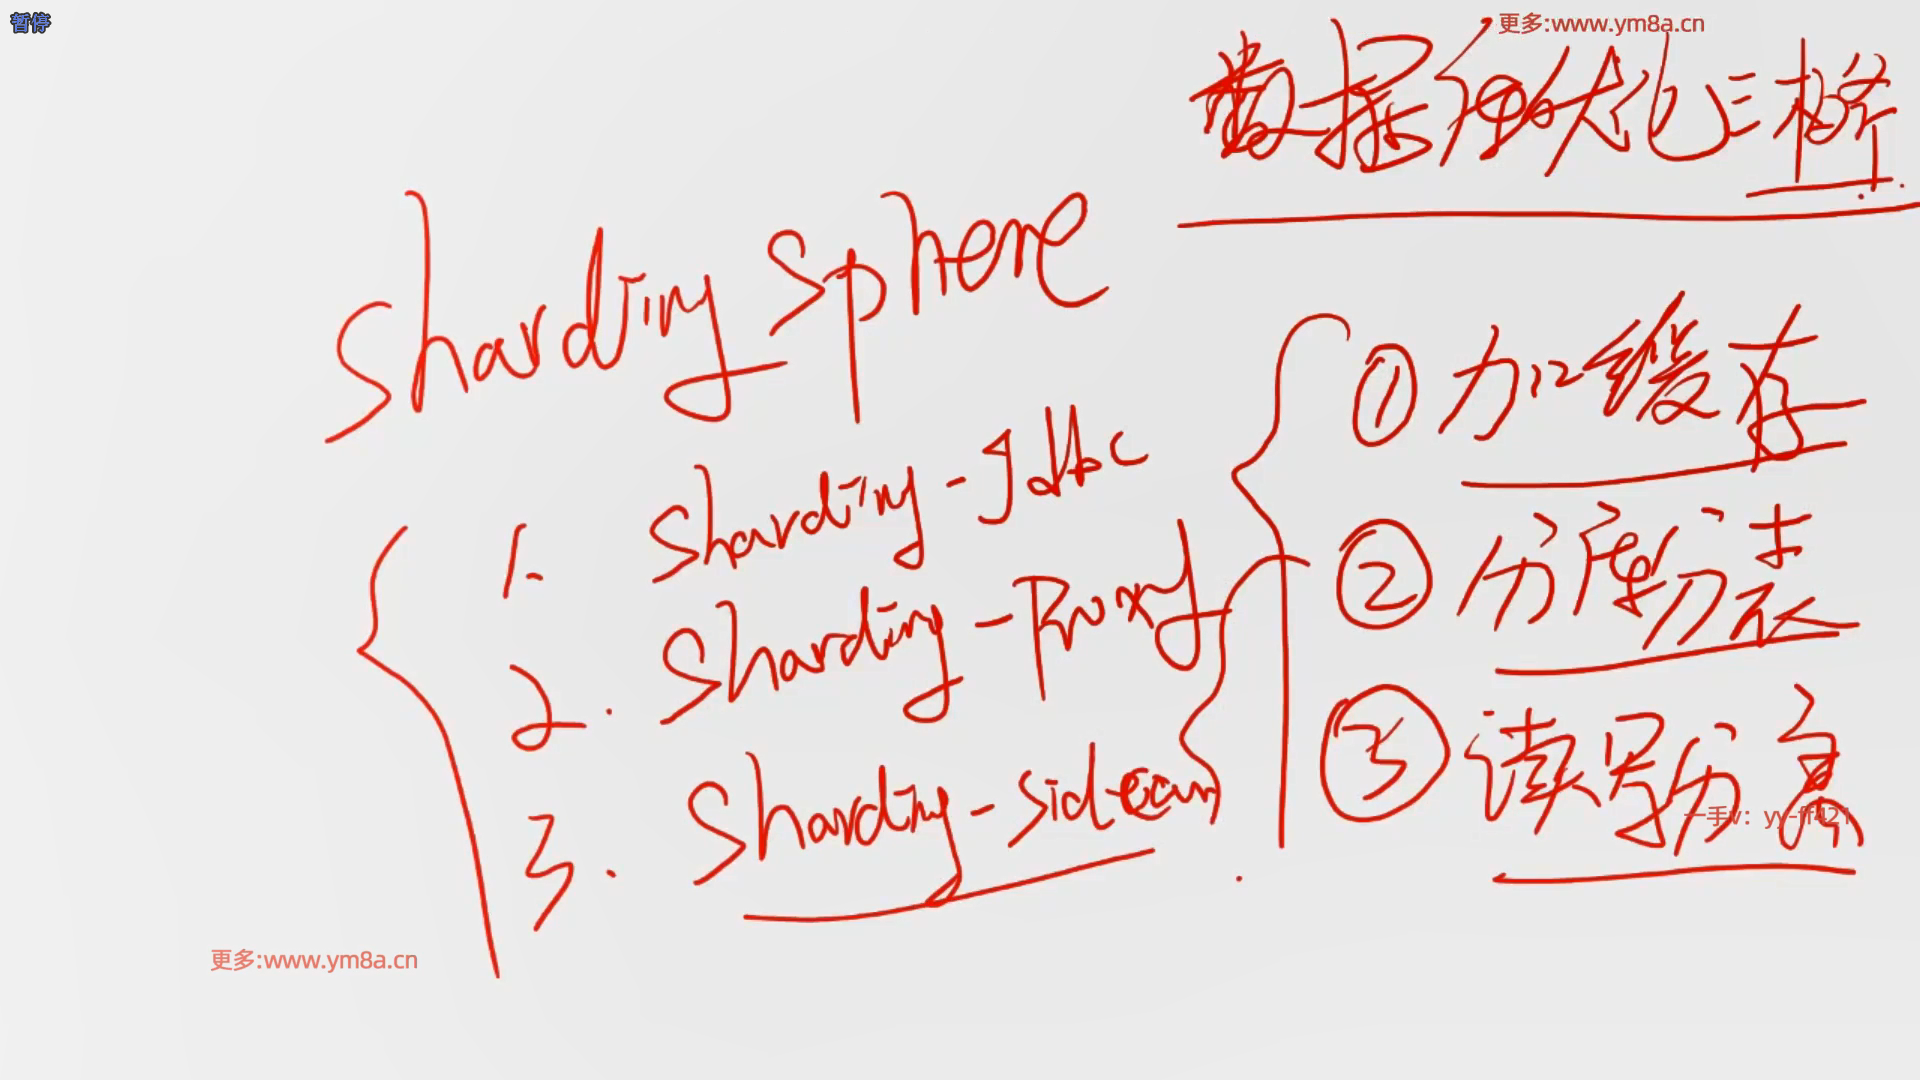 暂停
更多:www.ym8a.cn
数据库优化三板斧
Sharding Sphere
1. Sharding-Jdbc
2. Sharding-Proxy
3. Sharding-Sidecar
① 加缓存
② 分库分表
③ 读写分离
一手v：yy-ff421
更多:www.ym8a.cn